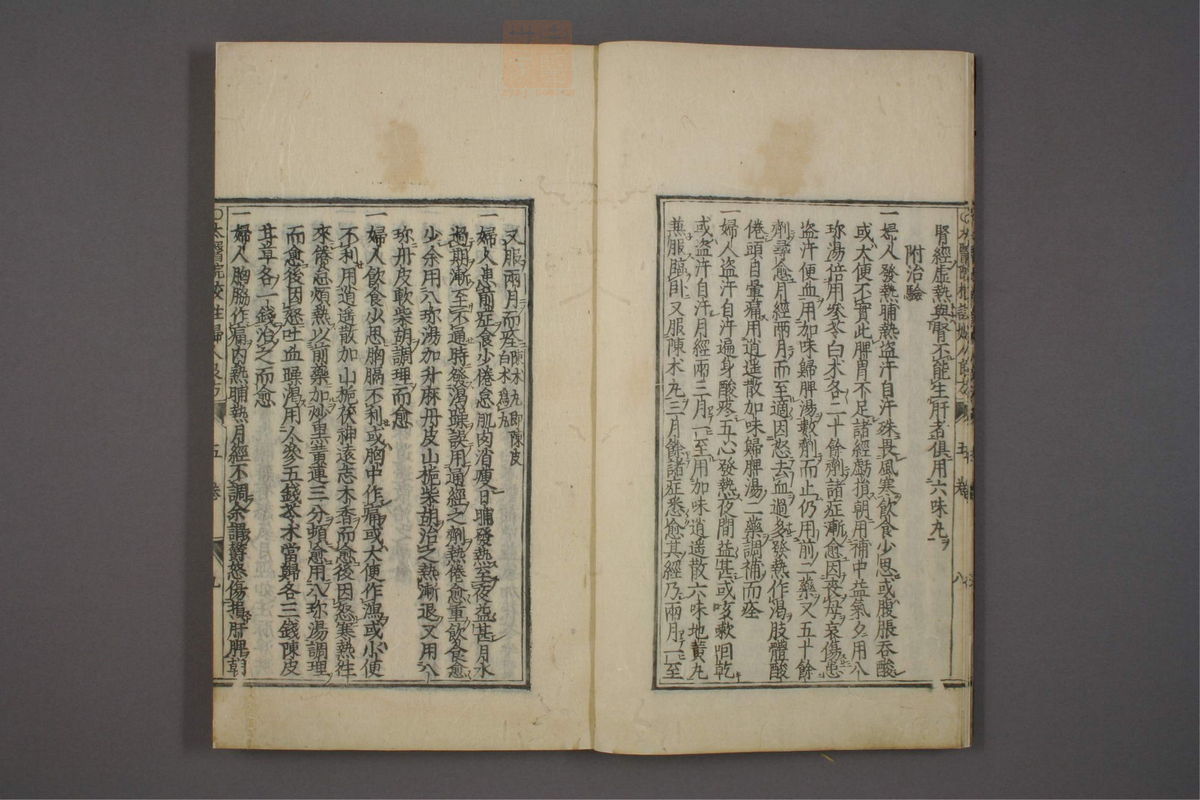 腎經虛熱與腎不能生肝者俱用六味丸
附治驗
一婦人發熱晡熱盜汗自汗殊畏風寒飲食少思或腹脹吞酸
或大便不實此脾胃不足諸經虧損朝用補中益氣夕用八
珎湯倍用參苓白朮各二十餘劑諸症漸愈因喪母哀傷患
盜汗便血用加味歸脾湯數劑而止仍用前二藥又五十餘
劑尋愈月經兩月而至適因怒去血過多發熱作渴肢體酸
倦頭目暈痛用逍遥散加味歸脾湯二藥調補而痊
一婦人盜汗自汗遍身酸疼五心發熱夜間益甚或咳嗽咽乾
或盜汗自汗月經兩三月一至用加味逍遥散六味地黃丸
兼服臨臥又服陳朮丸三月餘諸症悉愈其經乃兩月一至
又服兩月而痊陳朮丸即陳皮白朮爲丸
一婦人患前症食少倦怠肌肉消瘦日晡發熱至夜益甚月水
過期漸至不通時發渴躁誤用通經之劑熱倦愈重飲食愈
少余用八珎湯加升麻丹皮山梔柴胡治之熱漸退又用八
珎丹皮軟柴胡調理而愈
一婦人飲食少思胸膈不利或胸中作痛或大便作瀉或小便
不利用逍遥散加山梔茯神遠志木香而愈後因怒寒熱徃
來倦怠煩熱以前藥加炒黑黃連三分頻愈用八珎湯調理
而愈後因怒吐血躁渴用人參五錢苓朮當歸各三錢陳皮
甘草各一錢治之而愈
一婦人胸脇作痛内熱晡熱月經不調余謂鬱怒傷損肝脾朝
〇太醫院校註婦人良方
五卷
九